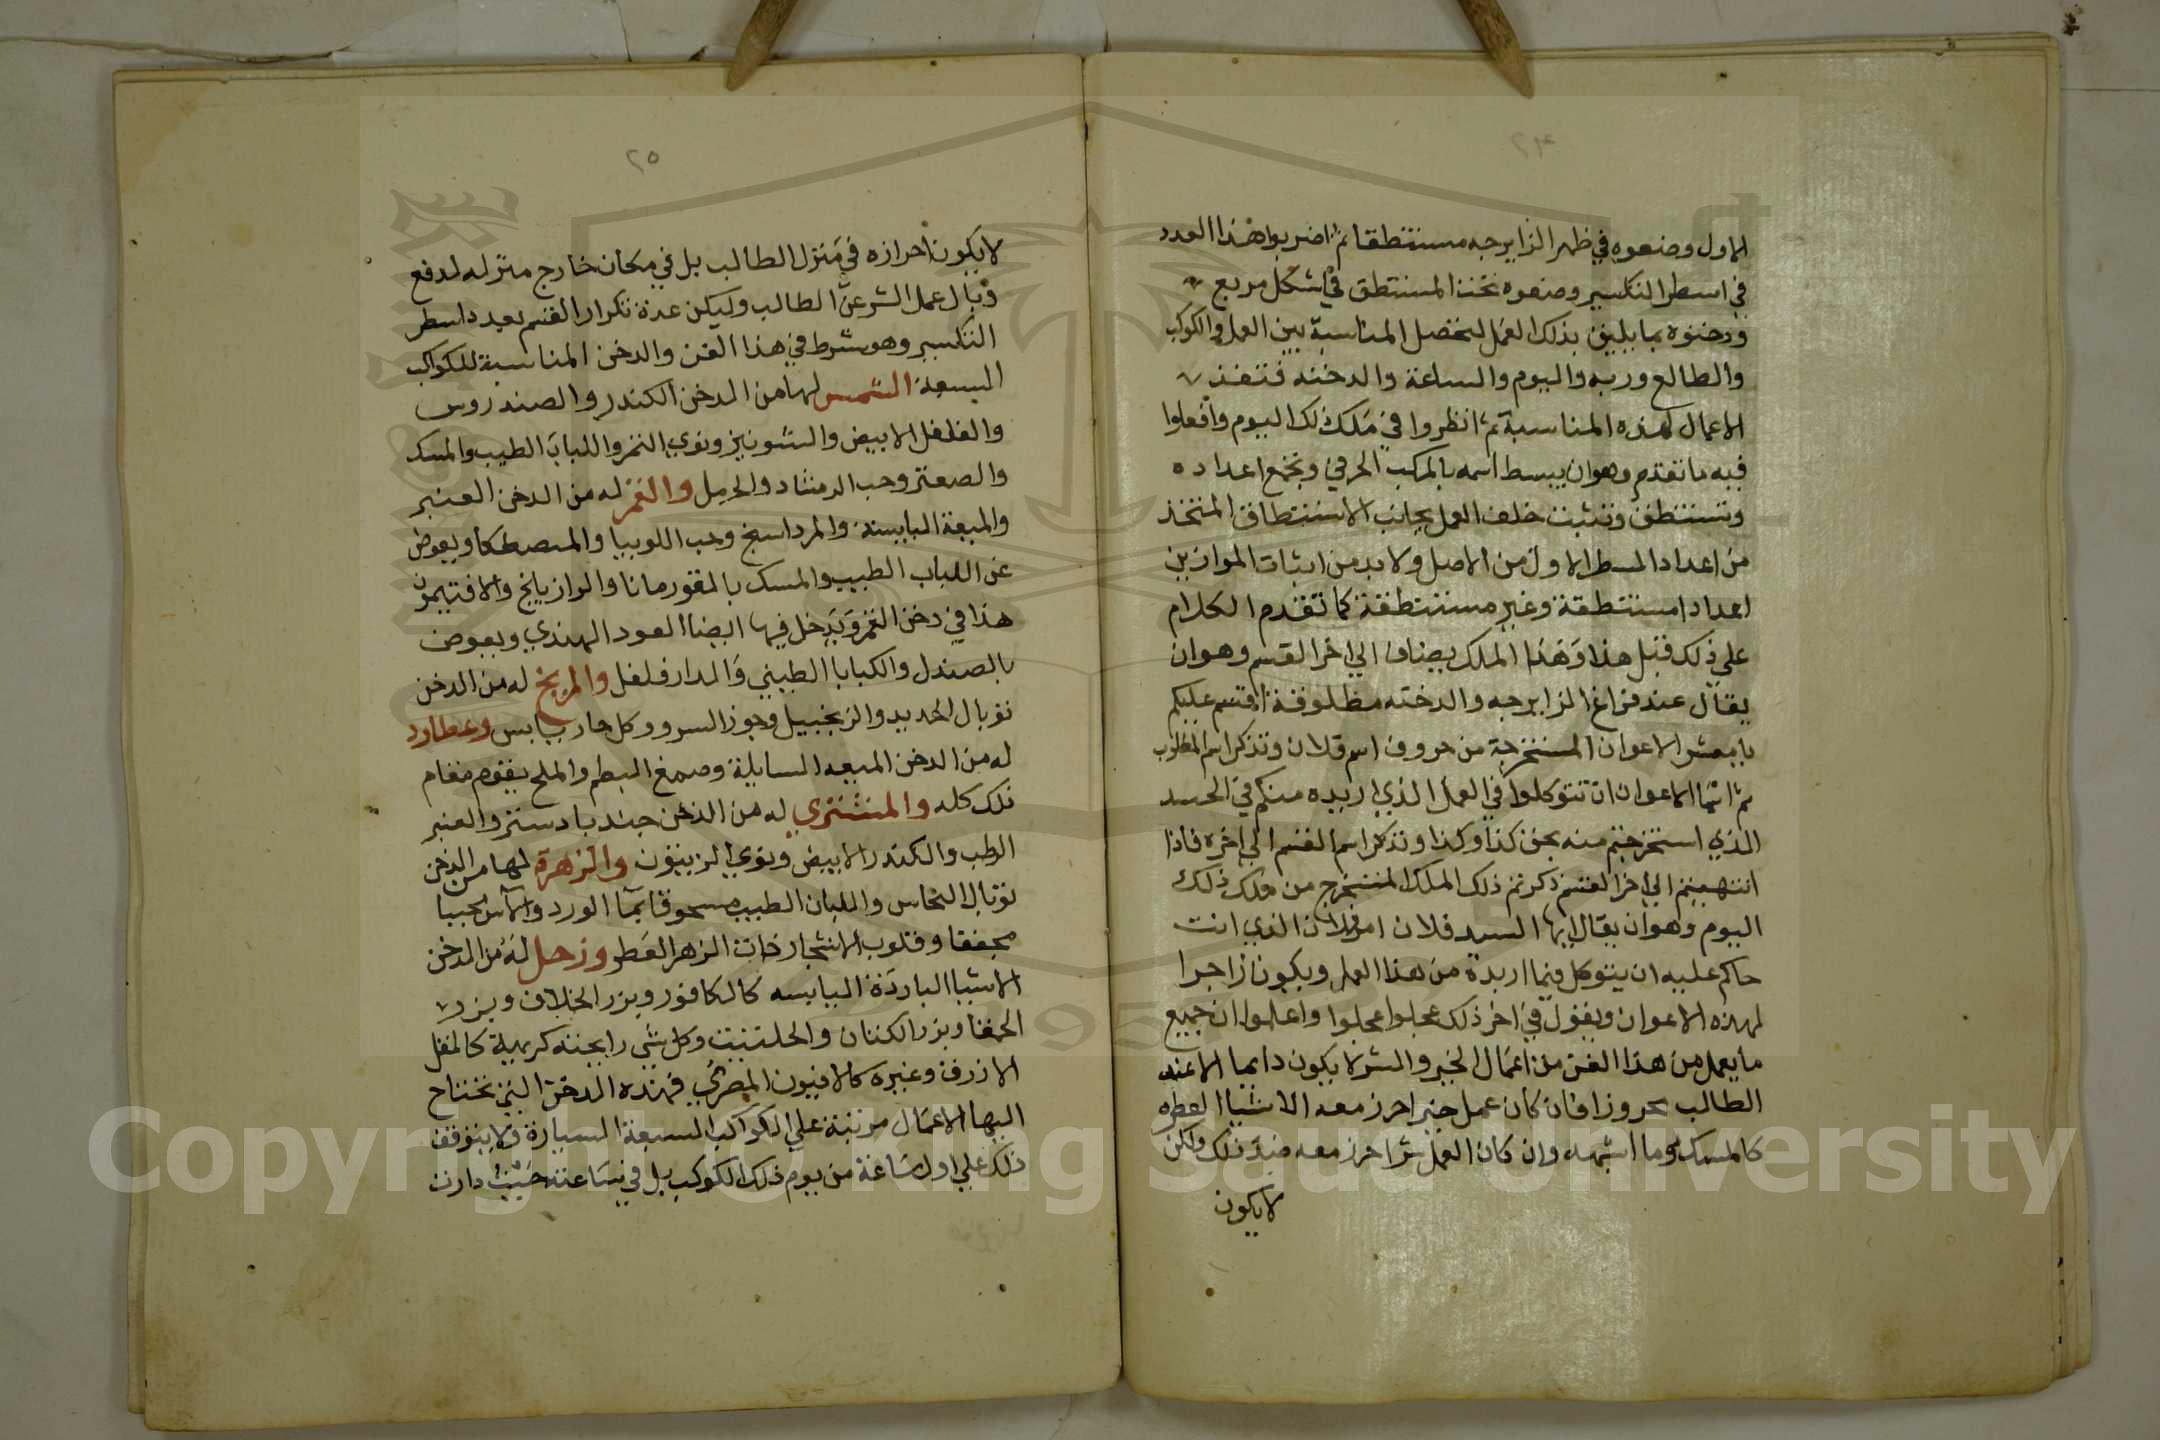 ٢٤
الاول وضعوه في ظهر الزايرجه مستنطقا ثم اضربوا هذا العدد
في اسطر التكسير وضعوه تحت المستنطق في شكل مربع
ودخنوه بما يليق بذلك العمل لتحصل المناسبة بين العمل والكوكب
والطالع وربه واليوم والساعة والدخنه فتنفذ
الاعمال لهذه المناسبة ثم انظروا في ملك ذلك اليوم وافعلوا
فيه ما تقدم وهو ان يبسط اسمه بالمركب الحرفي وتجمع اعداده
وتستنطق وتثبت خلف العمل بجانب الاستنطاق المتخذ
من اعداد السطر الاول من الاصل ولا بد من اثبات الموازين
اعدادا مستنطقة وغير مستنطقة كما تقدم الكلام
علي ذلك قبل هذا وهذا الملك يضاف الي اخر القسم وهو ان
يقال عند فراغ الزايرجه والدخنه مطلوقة اقسم عليكم
يا معشر الاعوان المستخرجة من حروف اسم فلان وتذكر اسم المطلوب
ثم ايها الاعوان ان تتوكلوا في العمل الذي اريده منكم في الجسد
الذي استخرجتم منه بحق كذا وكذا وتذكر اسم القسم الي اخره فاذا
انتهيتم الي اخر القسم ذكرتم ذلك الملك المستخرج من ملك ذلك
اليوم وهو ان يقال ايها السيد فلان او فلان الذي انت
حاكم عليه ان يتوكل فيما اريدة من هذا العمل ويكون زاجرا
لهذه الاعوان ويقول في اخر ذلك عجلوا عجلوا واعلموا ان جميع
ما يعمل من هذا الفن من اعمال الخير والشر لا يكون دايما الا عند
الطالب محروزا فان كان عمل خير احرز معه الاشيا العطره
كالمسك وما اشبهه وان كان العمل شرا احرز معه ضد ذلك ولكن
لا يكون
٢٥
لا يكون احرازه في منزل الطالب بل في مكان خارج منزله لدفع
وبال عمل الشر عن الطالب وليكن عدة تكرار القسم بعدد اسطر
التكسير وهو شرط في هذا الفن والدخن المناسبة للكواكب
السبعة الشمس لها من الدخن الكندر والصندروس
والفلفل الابيض والشونيز ونوي التمر واللبان الطيب والمسك
والصعتر وحب الرمشاد والحرمل والقمر له من الدخن العنبر
والميعة اليابسة والمرداسنج وحب اللوبيا والمصطكا ويعوض
عن اللبان الطيب والمسك بالمقورمانا والرازيانج والافتيمون
هذا في دخن القمر ويدخل فيها ايضا العود الهندي ويعوض
بالصندل والكبابا الطيبني والدارفلفل والمريخ له من الدخن
توبال الحديد والزنجبيل وجوز السرو وكل حار يابس وعطارد
له من الدخن الميعه السايلة وصمغ البطم والملح يقوم مقام
ذلك كله والمشتري له من الدخن جندبادستر والعنبر
الرطب والكندر الابيض ونوي الزيتون والزهرة لها من الدخن
توبال النحاس واللبان الطيب مسحوقا بما الورد والآس محببا
مجففا وقلوب الاشجار ذات الزهر العطر وزحل له من الدخن
الاشيا الباردة اليابسه كالكافور وبزر الخلاف وبزر
الحمقا وبزر الكتان والحلتيت وكل شي رايحته كريهة كالمقل
الازرق وغيره كالافيون المصري فهذه الدخن التي تحتاج
اليها الاعمال مرتبة علي الكواكب السبعة السيارة ولا يتوقف
ذلك علي اول ساعة من يوم ذلك الكوكب بل في ساعته حيث دارت
Copyright © King Saud University